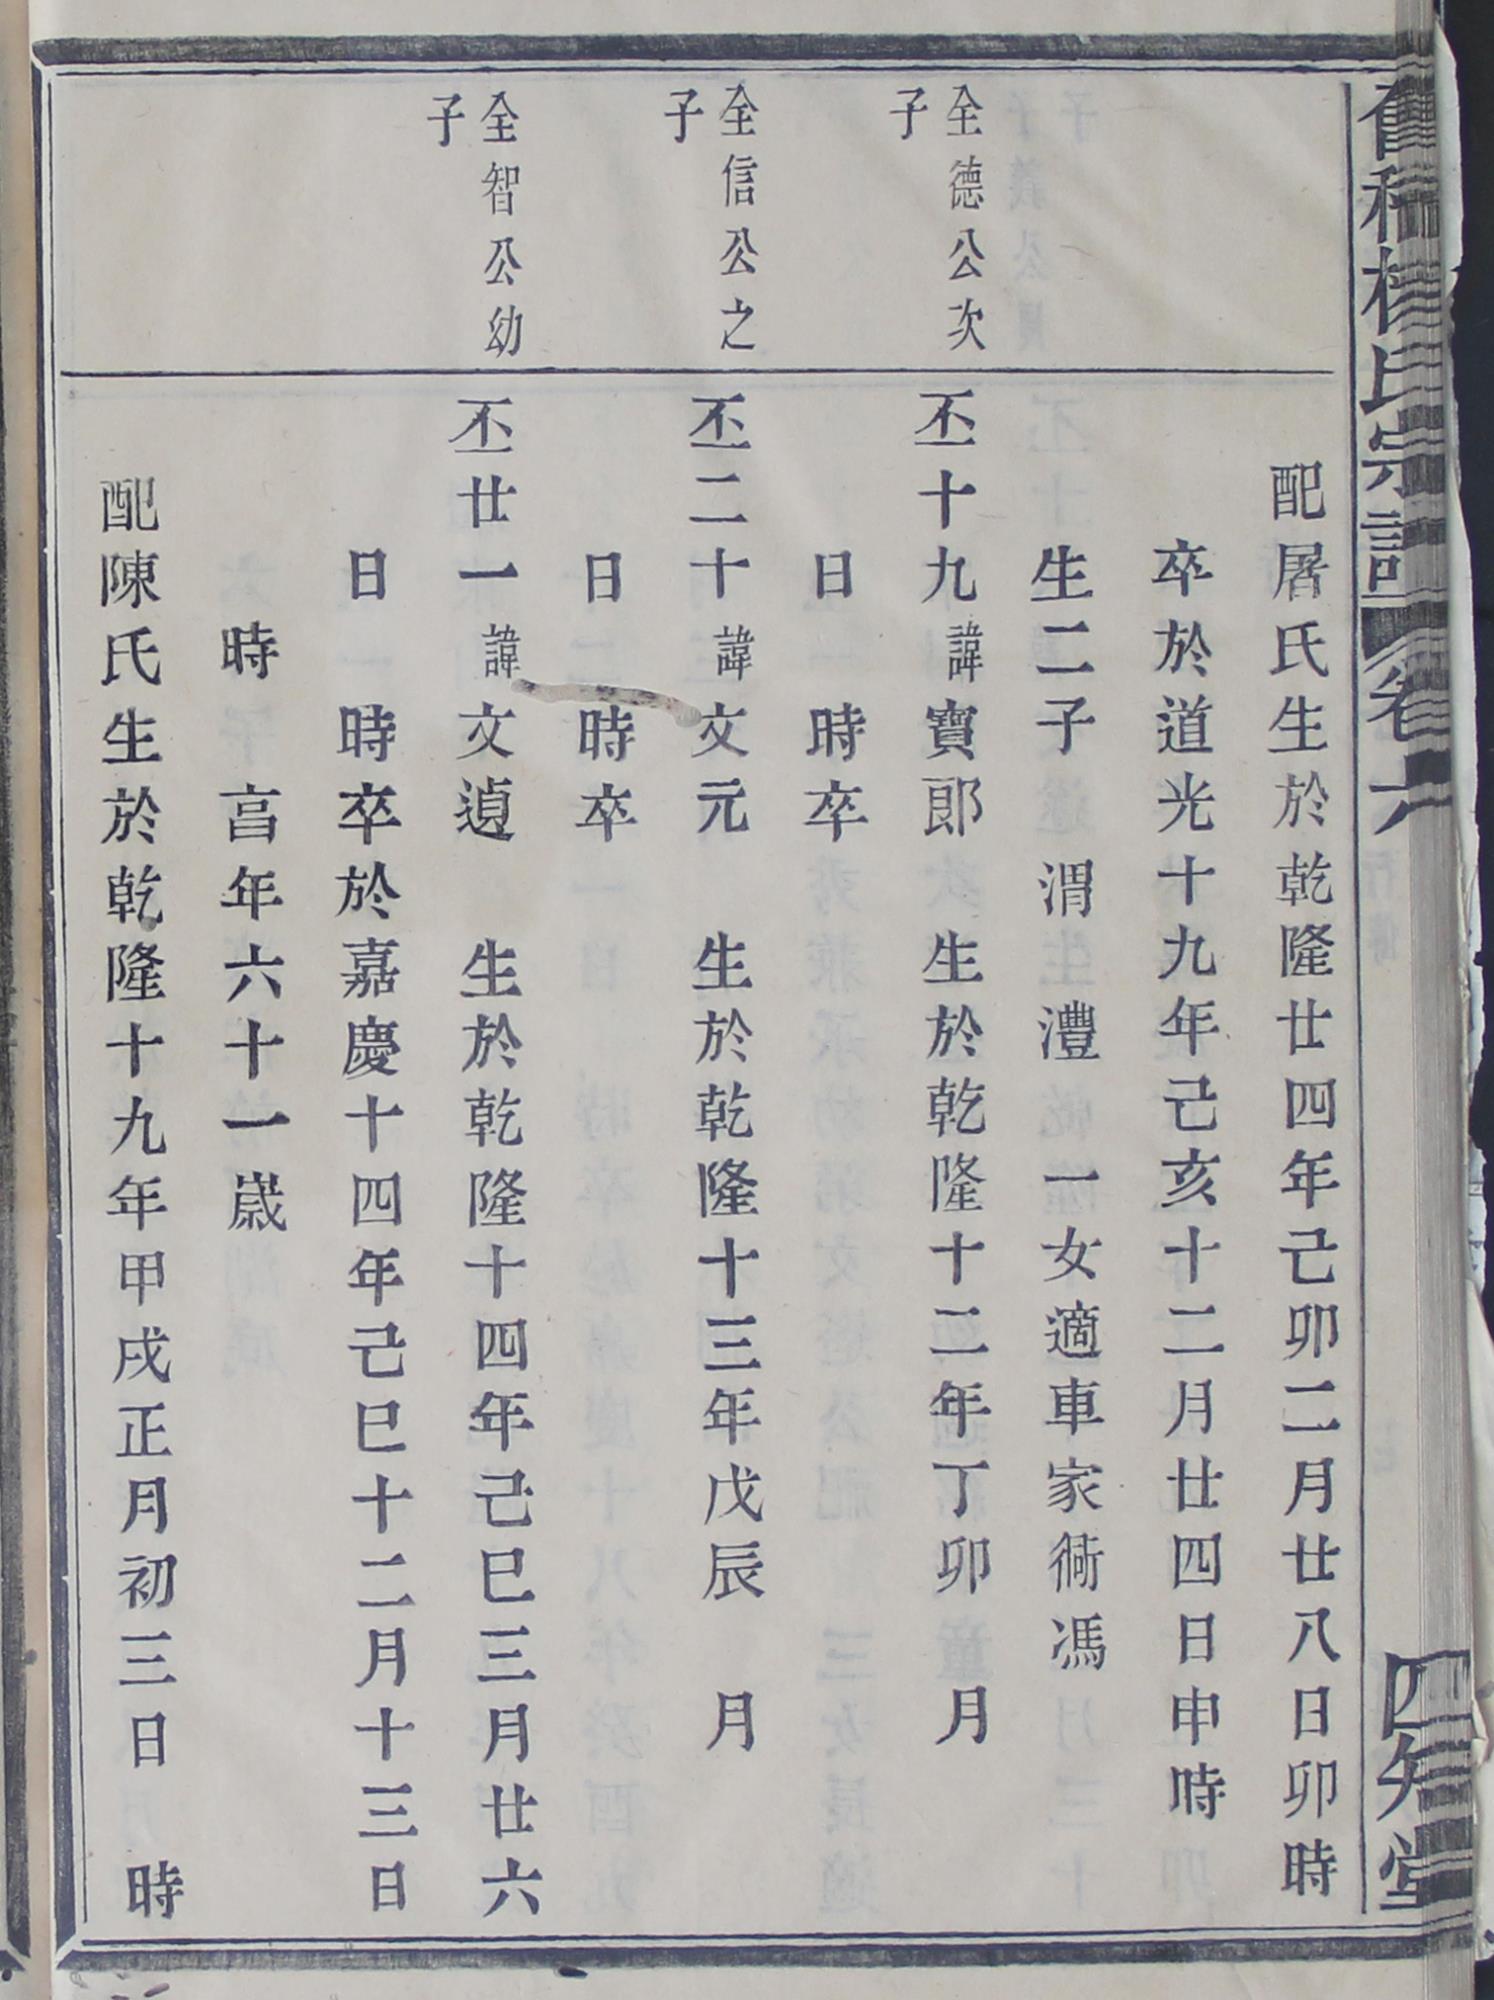 舊程楊氏宗譜 卷六 四知堂
配屠氏生於乾隆廿四年己卯二月廿八日卯時
卒於道光十九年己亥十二月廿四日申時
生二子 渭 澧 一女適車家衕馮
全德公次
子
丕十九諱寶郎 生於乾隆十二年丁卯 月
日 時卒
全信公之
子
丕二十諱文元 生於乾隆十三年戊辰 月
日 時卒
全智公幼
子
丕廿一諱文遉 生於乾隆十四年己巳三月廿六
日 時卒於嘉慶十四年己巳十二月十三日
時 亯年六十一歲
配陳氏生於乾隆十九年甲戌正月初三日 時